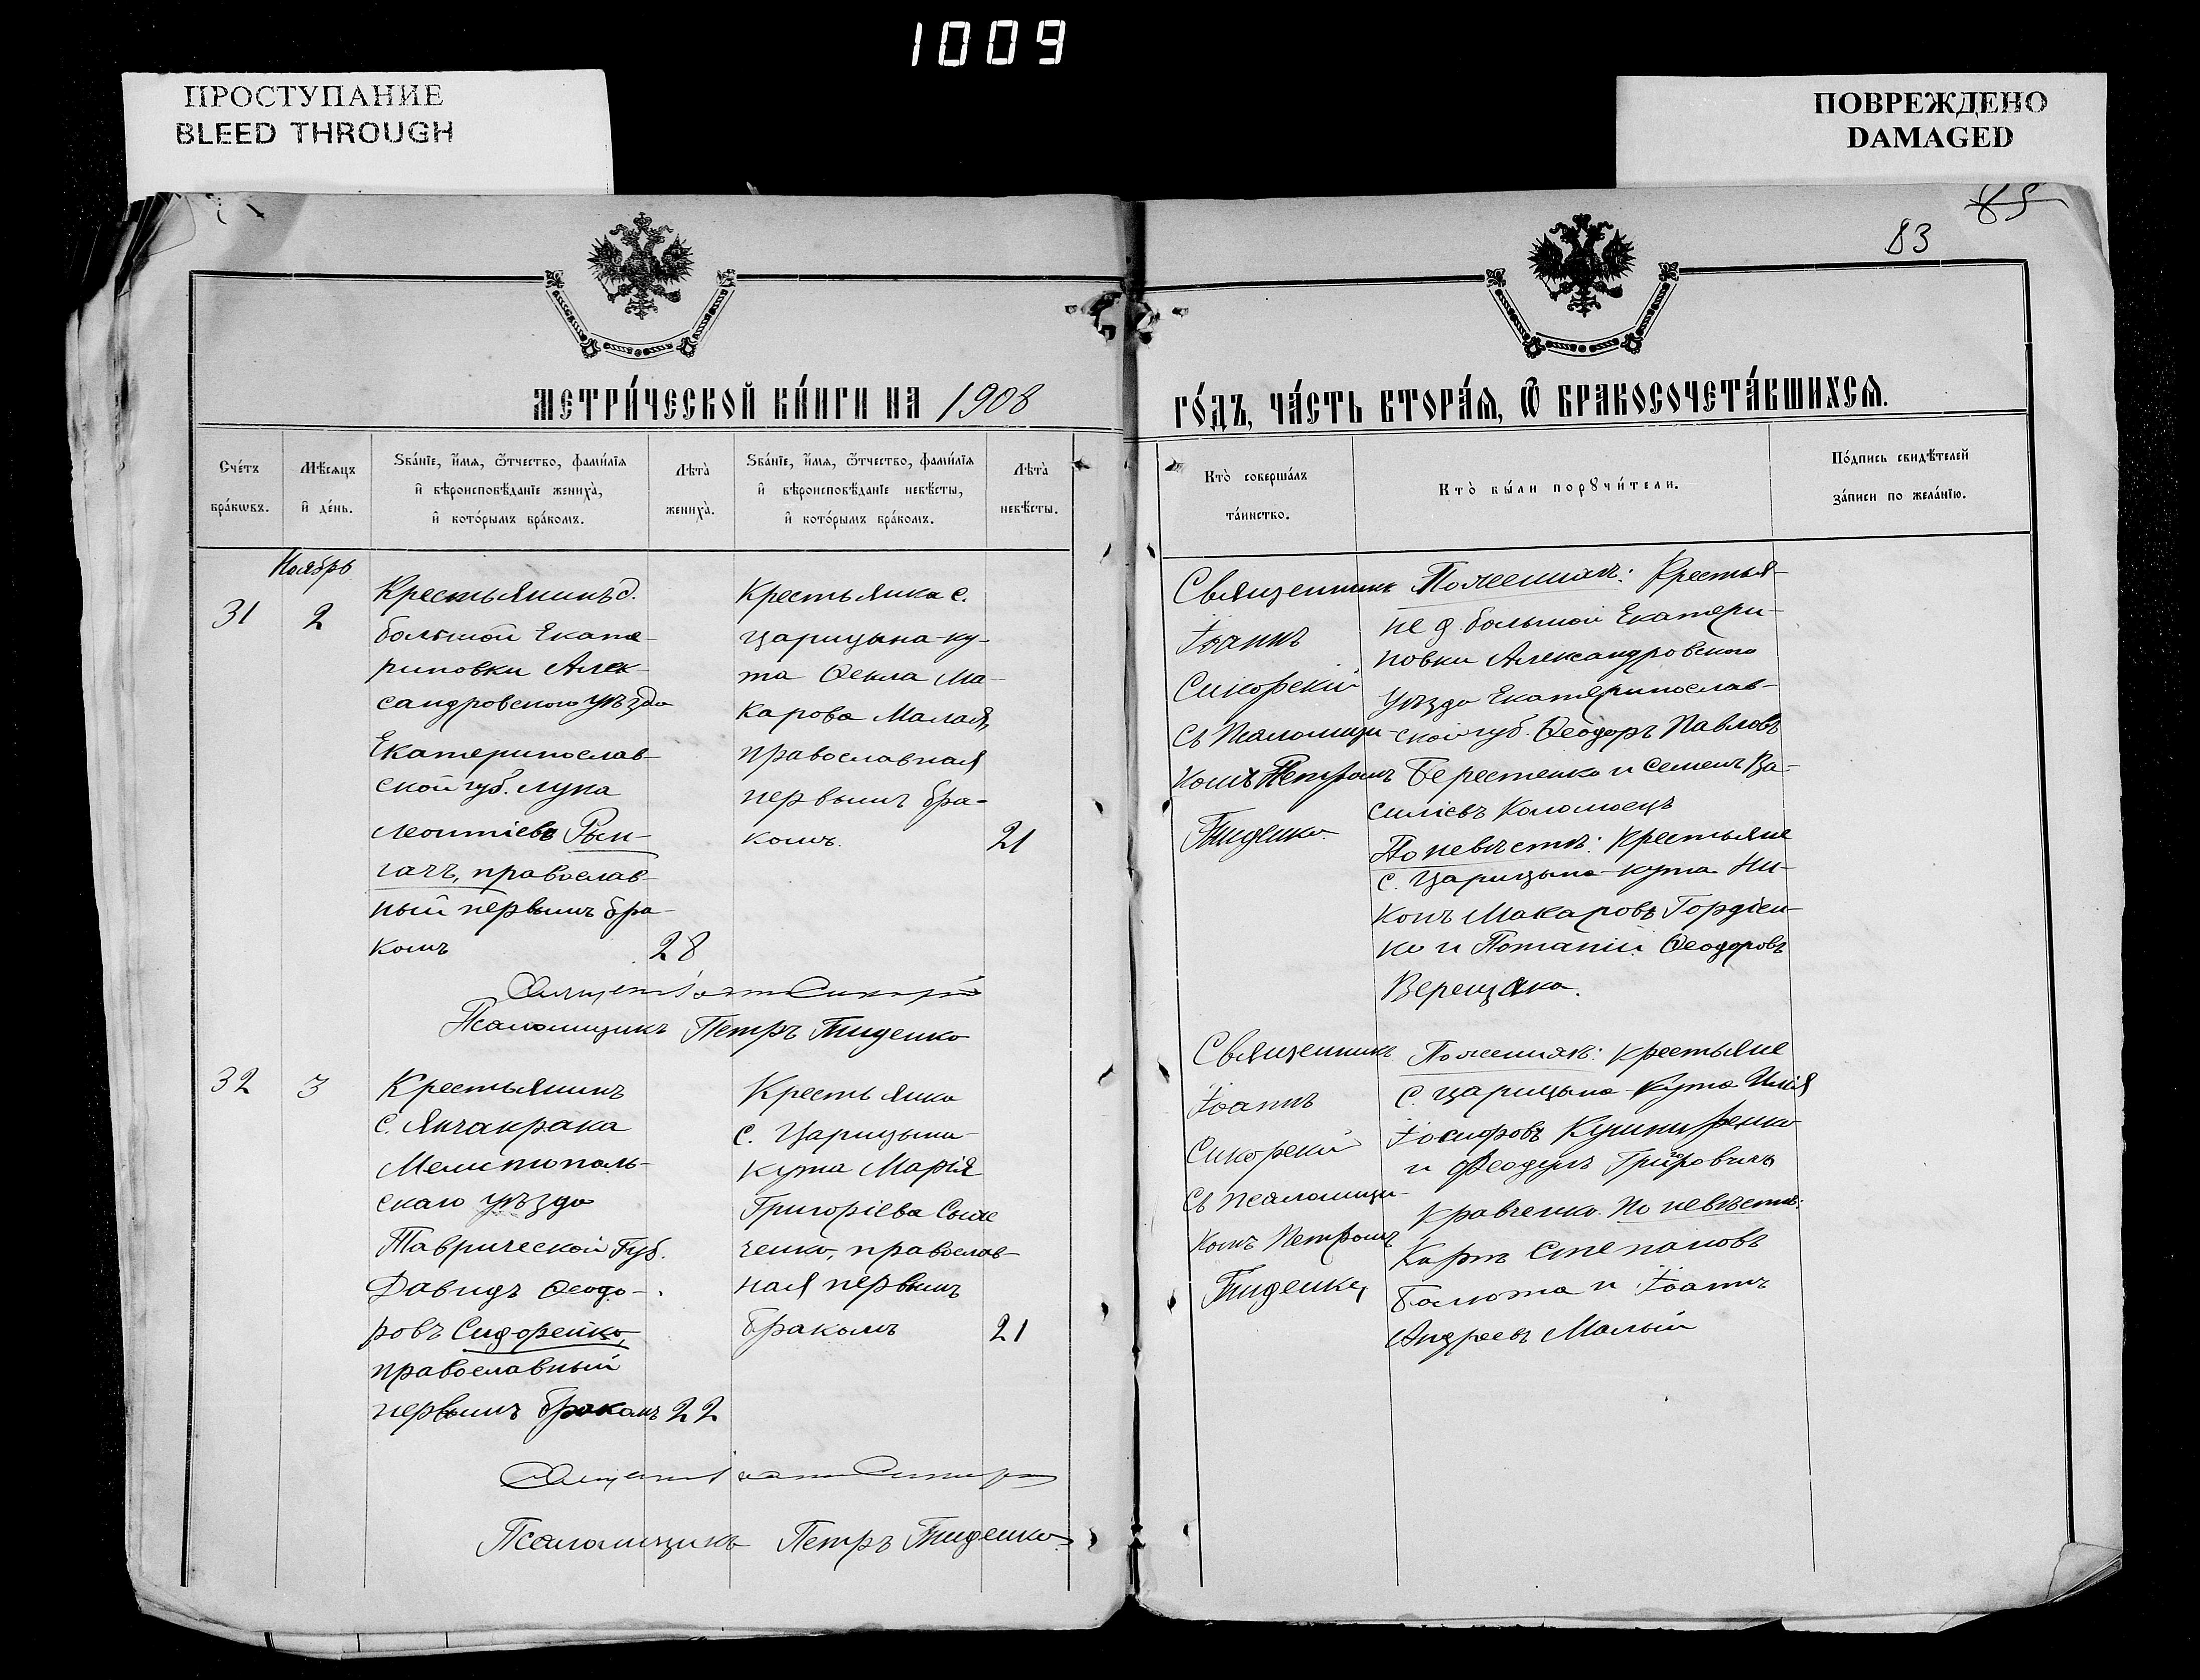 1009
ПРОСТУПАНИЕ
BLEED THROUGH
ПОВРЕЖДЕНО
DAMAGED
85
83
МЕТРИ́ЧЕСКОЙ КНИ́ГИ НА 1908
ГО́ДЪ, ЧА́СТЬ ВТОРА́Ѧ, Ѿ БРАКОСОЧЕТА́ВШИХСѦ.
Сче́тъ
бра́кѡвъ.
Мѣ́сѧцъ
и҆ де́нь.
Ѕва́нїе, и҆́мѧ, ѻ҆́тчество, фами́лїѧ
и҆ вѣроисповѣ́данїе жениха̀,
и҆ кото́рымъ бра́комъ.
Лѣта̀
жениха̀.
Ѕва́нїе, и҆́мѧ, ѻ҆́тчество, фами́лїѧ
и҆ вѣроисповѣ́данїе невѣ́сты,
и҆ кото́рымъ бра́комъ.
Лѣта̀
невѣ́сты.
Кто̀ соверша́лъ
та́инство.
Кто̀ бы́ли порꙋчи́тели.
По́дпись свидѣ́телей
за́писи по жела́нїю.
Ноябрь
31
2
Крестьянинъ д.
большой Екате-
риновки Алек-
сандровского уѣзда
Екатеринослав-
ской губ. Лука
Леонтіевъ Рын-
гачъ, православ-
ный первымъ бра-
комъ
28
Крестьянка с.
Царицына-ку-
та Ѳекла Ма-
карова Малая,
православная
первымъ бра-
комъ.
21
Священникъ
Іоаннъ
Сикорскій
съ Псаломщи-
комъ Петромъ
Тищенко.
По женихѣ: Крестья-
не д. большой Екатери-
новки Александровского
уѣзда Екатеринослав-
ской губ. Ѳеодоръ Павловъ
Берестенко и Семенъ Ва-
силіевъ Коломоецъ
По невѣстѣ: Крестьяне
с. Царицына-кута Ни-
конъ Макаровъ Гордіен-
ко и Потапій Ѳеодоровъ
Верещака.
Священникъ Іоаннъ Сикорскій
Псаломщикъ Петръ Тищенко
32
3
Крестьянинъ
с. Янчакрака
Мелитополь-
скаго уѣзда
Таврической Губ.
Давидъ Ѳеодо-
ровъ Сидоренко,
православный
первымъ бракомъ
22
Крестьянка
с. Царицына-
кута Марія
Григоріева Сы
ченко, православ-
ная первымъ
бракомъ
21
Священникъ
Іоаннъ
Сикорскій
съ псаломщи-
комъ Петромъ
Тищенко,
По женихѣ: крестьяне
с. Царицына-Кута Илія
Іосифовъ
и Ѳеодулъ
Кравченко. По невѣстѣ:
Карпъ Степановъ
Балюта и Іоаннъ
Андреевъ Малый
Священникъ Іоаннъ Сикорскій
Псаломщикъ Петръ Тищенко